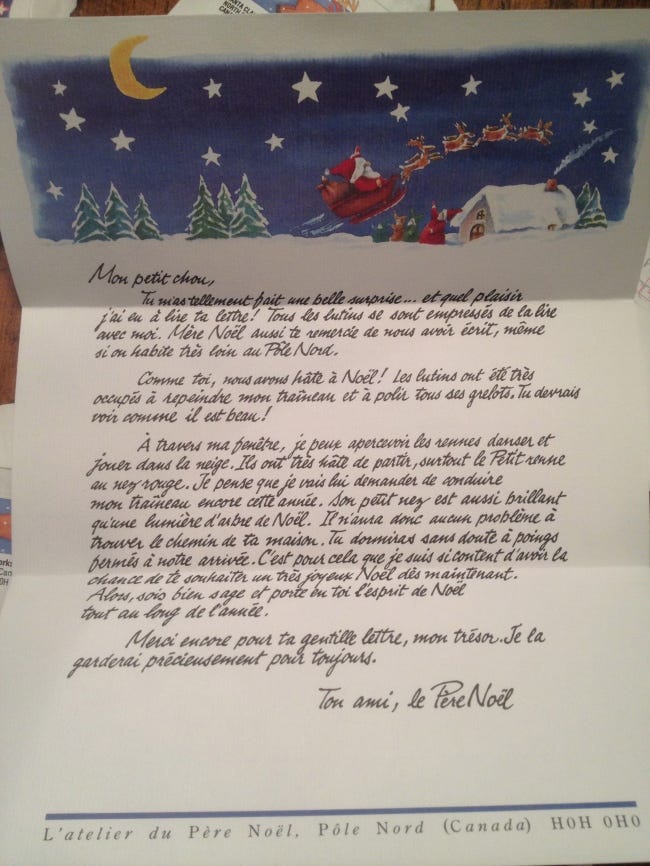 SANTA CLA
NORTH
CAN
Mon petit chou,
Tu m'as tellement fait une belle surprise... et quel plaisir
j'ai eu à lire ta lettre! Tous les lutins se sont empressés de la lire
avec moi. Mère Noël aussi te remercie de nous avoir écrit, même
si on habite très loin au Pôle Nord.
Comme toi, nous avons hâte à Noël! Les lutins ont été très
occupés à repeindre mon traîneau et à polir tous ses grelots. Tu devrais
voir comme il est beau!
À travers ma fenêtre, je peux apercevoir les rennes danser et
jouer dans la neige. Ils ont très hâte de partir, surtout le Petit renne
au nez rouge. Je pense que je vais lui demander de conduire
mon traîneau encore cette année. Son petit nez est aussi brillant
qu'une lumière d'arbre de Noël. Il n'aura donc aucun problème à
trouver le chemin de ta maison. Tu dormiras sans doute à poings
fermés à notre arrivée. C'est pour cela que je suis si content d'avoir la
chance de te souhaiter un très joyeux Noël dès maintenant.
Alors, sois bien sage et porte en toi l'esprit de Noël
tout au long de l'année.
Merci encore pour ta gentille lettre, mon trésor. Je la
garderai précieusement pour toujours.
Ton ami, le Père Noël
L'atelier du Père Noël, Pôle Nord (Canada) H0H 0H0